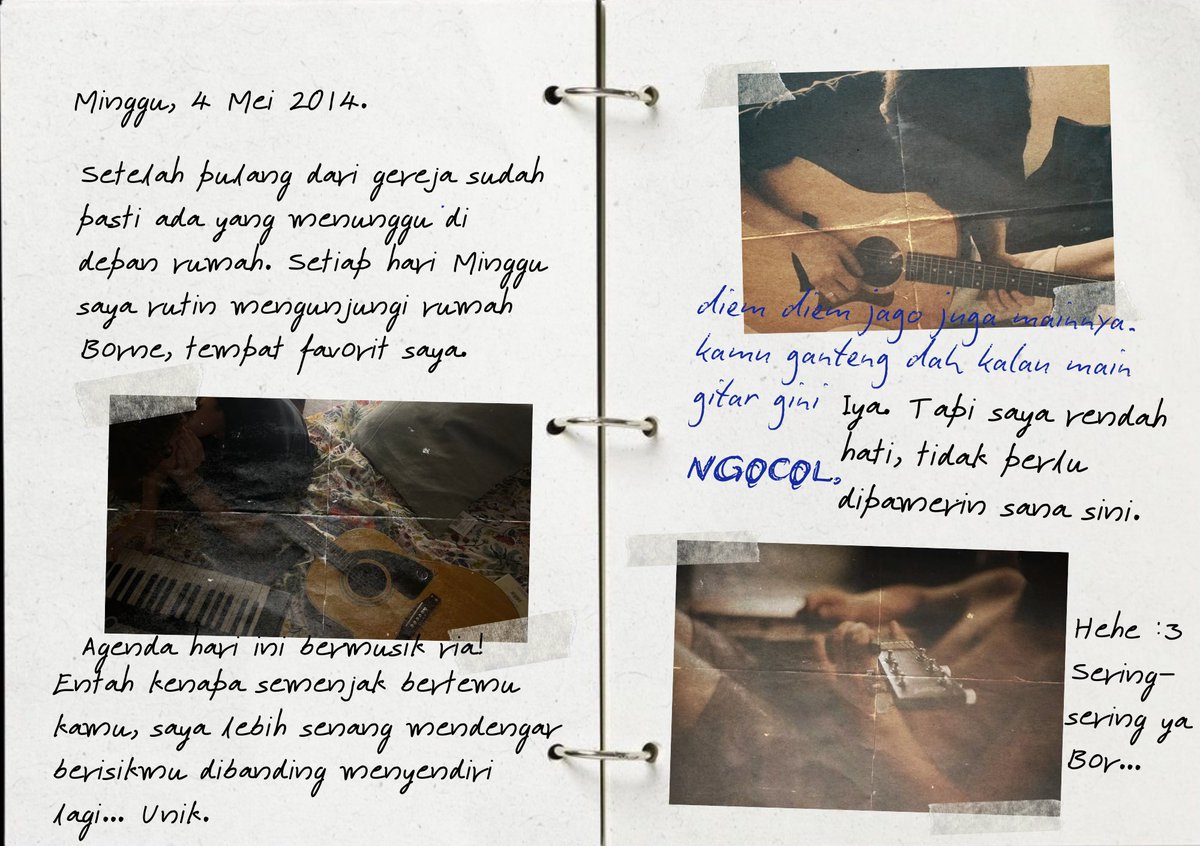 Minggu, 4 Mei 2014.
Setelah pulang dari gereja sudah
pasti ada yang menunggu di
depan rumah. Setiap hari Minggu
saya rutin mengunjungi rumah
Borne, tempat favorit saya.
Agenda hari ini bermusik ria!
Entah kenapa semenjak bertemu
kamu, saya lebih senang mendengar
berisikmu dibanding menyendiri
lagi... Unik.
diem diem jago juga mainnya.
kamu ganteng dah kalau main
gitar gini
Iya. Tapi saya rendah
hati, tidak perlu
dipamerin sana sini.
NGOCOL,
Hehe :3
Sering-
sering ya
Bor...